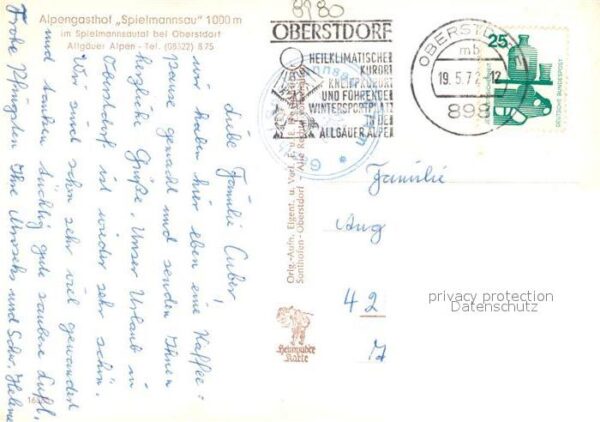 Alpengasthof „Spielmannsau" 1000 m
im Spielmannsautal bei Oberstdorf
Allgäuer Alpen - Tel. (08322) 8 75
8980
OBERSTDORF
HEILKLIMATISCHER
KURORT
KNEIPPKURORT
UND FÜHRENDER
WINTERSPORTPLATZ
IN DEN
ALLGÄUER ALPEN
OBERSTDORF
mb
19.5.72-12
898
25
DEUTSCHE BUNDESPOST
Liebe Familie Cuber,
wir haben hier eben eine Kaffee-
pause gemacht und senden Ihnen
herzliche Grüße. Unser Urlaub in
Oberstdorf ist wieder sehr schön.
Wir sind schon sehr viel gewandert
und tanken tüchtig gute saubere Luft.
Frohe Pfingsten Ihre und Helene
Orig.-Aufn. Eigent. u. Verl.
Sonthofen-Oberstdorf - Alle Rechte
Heimhuber
Karte
Familie
Aug
42
privacy protection
Datenschutz